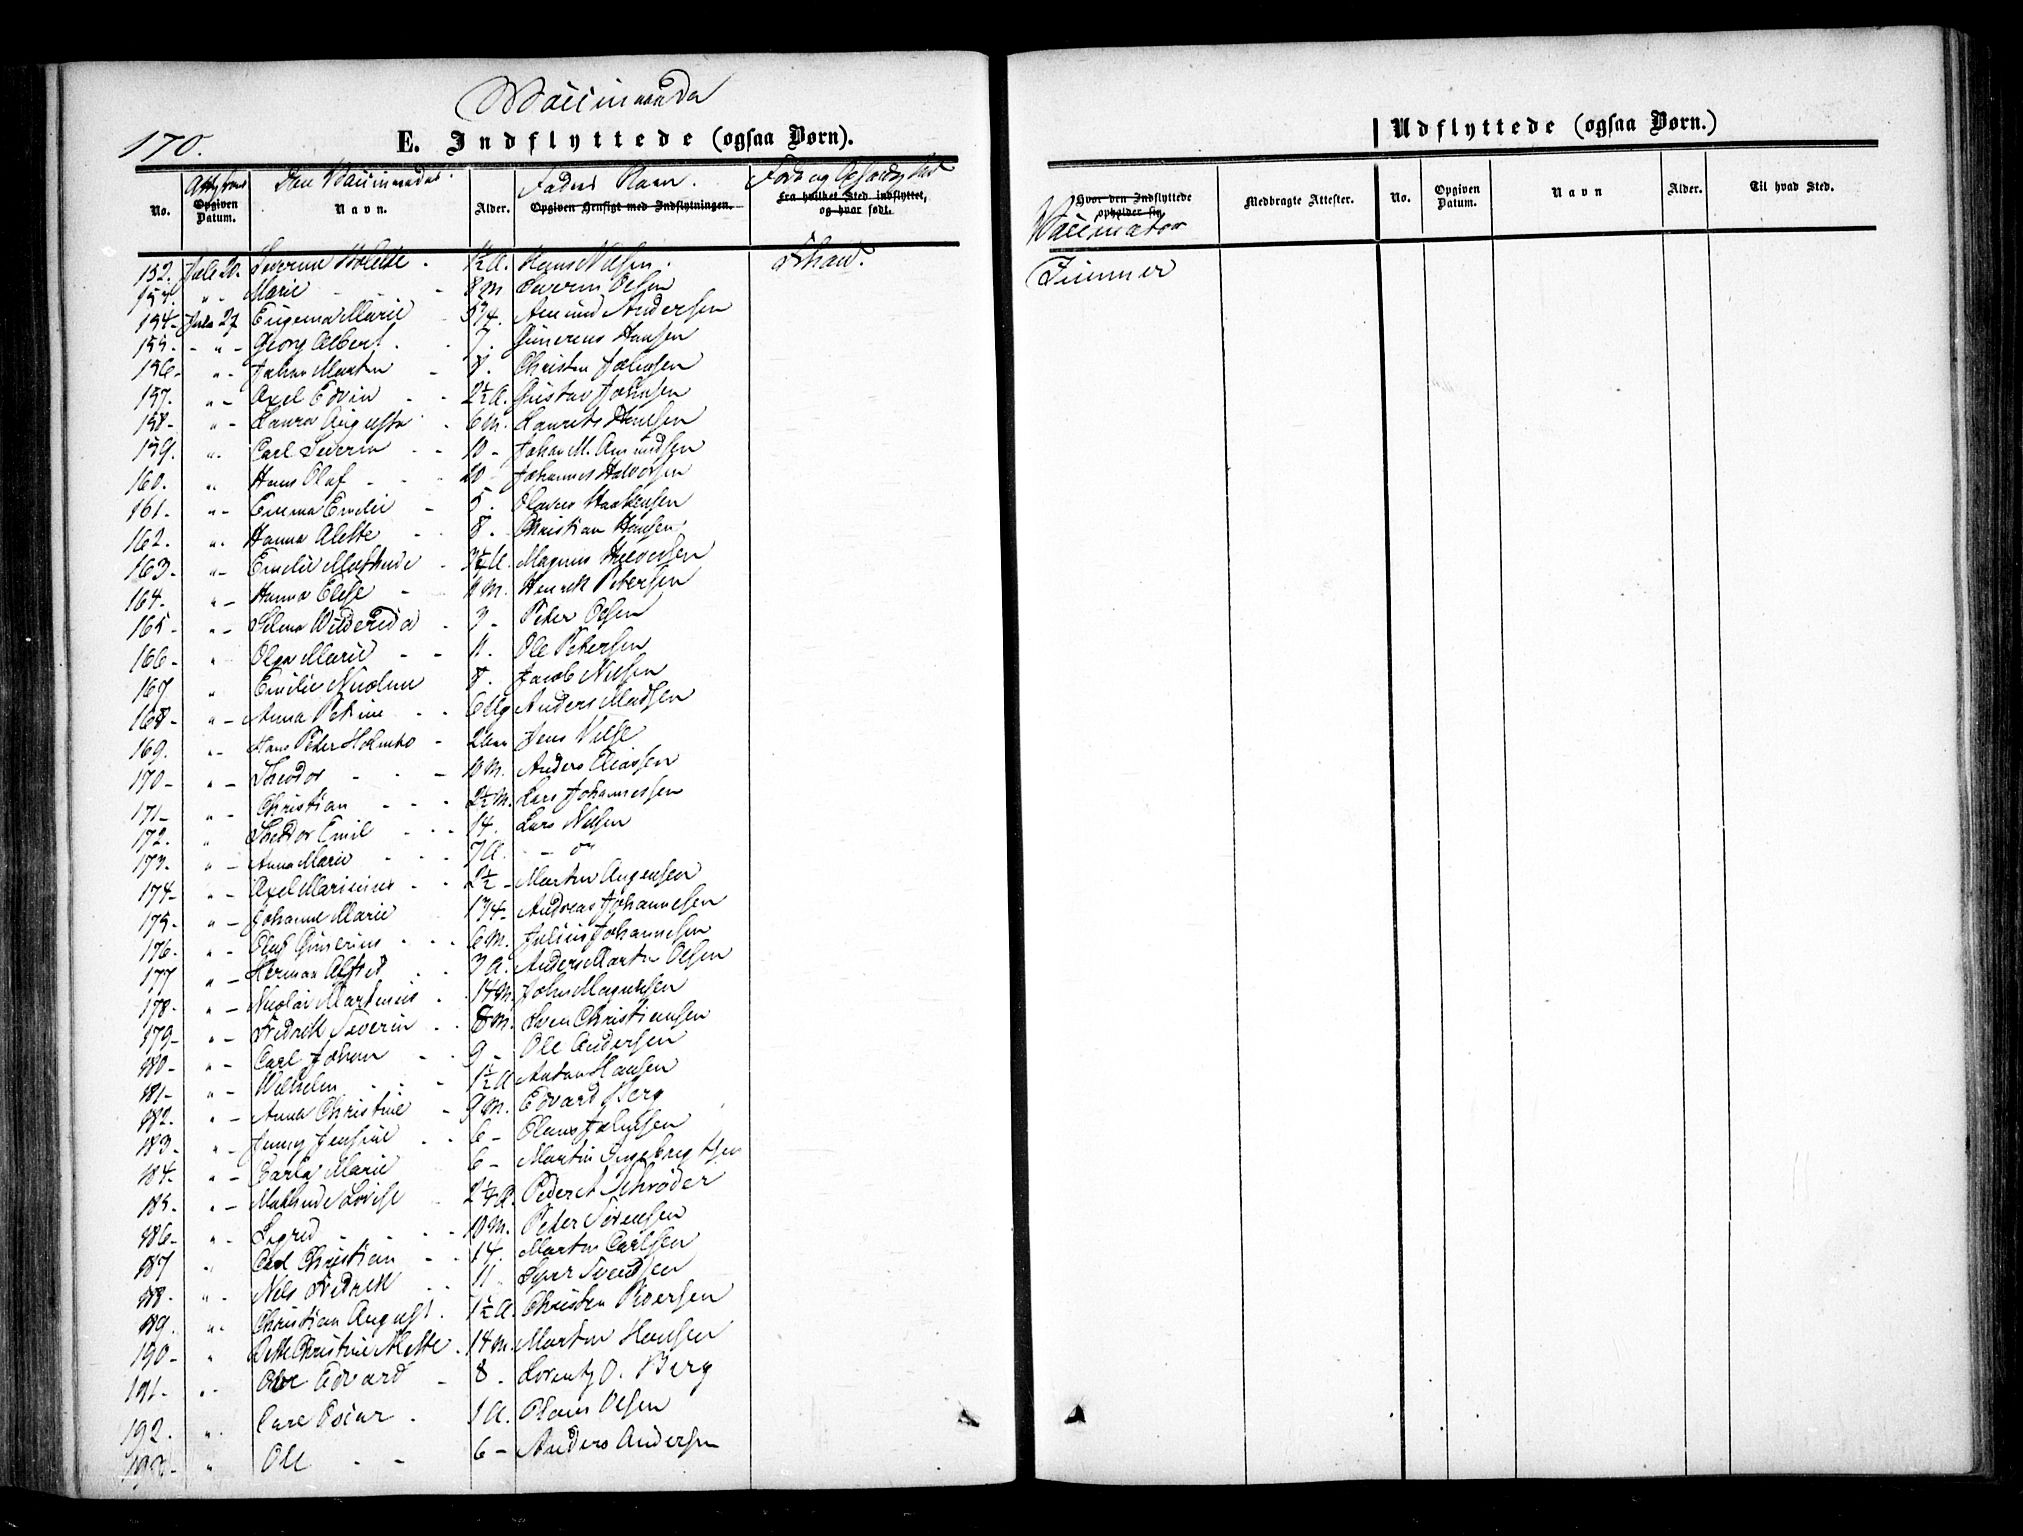 170.
Vaccinerede
E. Indflyttede (ogsaa Børn).
Den Vaccineredes
Faders Navn.
No.
Opgiven Datum.
Navn.
Alder.
Opgiven Hensigt med Indflytningen.
fra hvilket Sted indflyttet, og hvor født.
152. Juli 20. Severine 1½ A. Hans Nilsen.
153. " Marie 8 M Severin Olsen
154 Juli 27 Eugenia Marie 5¼. Amund Andersen
155. " Georg Albert 7. Gunerius Hansen
156 " Johan Martin 8. Christen Johnsen
157. " Axel Edvin 2½ A. Gustav Johnsen
158 " Laura Augusta 6 M. Laurits Hansen
159. " Carl Severin 10 Johan M. Amundsen
160. " Hans Olaf 10 Johannes Halvorsen
161. " Emma Emilie 5. Olaves Haakensen
162. " Hanna Alette 8. Christian Hansen
163 " Emilie Mathilde 3½ A. Magnus Halvorsen
164. " Hanna Elise 11 M. Henrik Petersen
165 " Wilderida 3 Peter Olsen
166 " Olga Marie 11. Ole Petersen
167. " Emilie Nicoline 8. Jacob Nilsen
168 " Anna Petrine 6 Anders Madsen
169. " Hans Peter 2 Jens
170 " Theodor 10 M. Anders Eliassen
171 " Christian 2½ M. Lars Johannessen
172. " Theodor Emil 14. Lars Nilsen
173. " Anna Marie 7 A.
174 " Axel Marinius 2½ Martin
175. " Johanne Marie 1¼ Andreas Johannesen
176. " Oluf Gunerius 6 M. Julius Johannesen
177 " Herman Alfred 3 A. Anders Martin Olsen
178. " Nicolai Martinius 14 M. John Magnussen
179 " Fredrik Severin 8 M. Sven Christiansen
180 " Carl Johan 9 Ole Andersen
181 " Wilhelm 1½ A Anton Hansen
182. " Anna Christine 9 M. Edvard Berg
183 " Jenny Jensine 6 Olaus Johnsen
184. " Carla Marie 6 Martin Ingebregtsen
185. " Mathilde Lovise 2¼ A. Peder A Schrøder
186 " Sigrid 10 M. Peder Sørensen
187 " Carl Christian 14. Martin Carlsen
188. " Nils Fredrik 11 Syver Svendsen
189. " Christian August 1½ A. Christen Iversen
190 " Christine Alette 14 M. Martin Hansen
191. " Edvard 8 Lorentz O. Berg
192. " Carl Oscar 1 A. Olsen
193 " Ole 6 Anders Andersen
Udflyttede (ogsaa Børn.)
Hvor den Indflyttede opholder sig.
Medbragte Attester.
No.
Opgiven Datum.
Navn
Alder.
Til hvad Sted.
Vaccinator